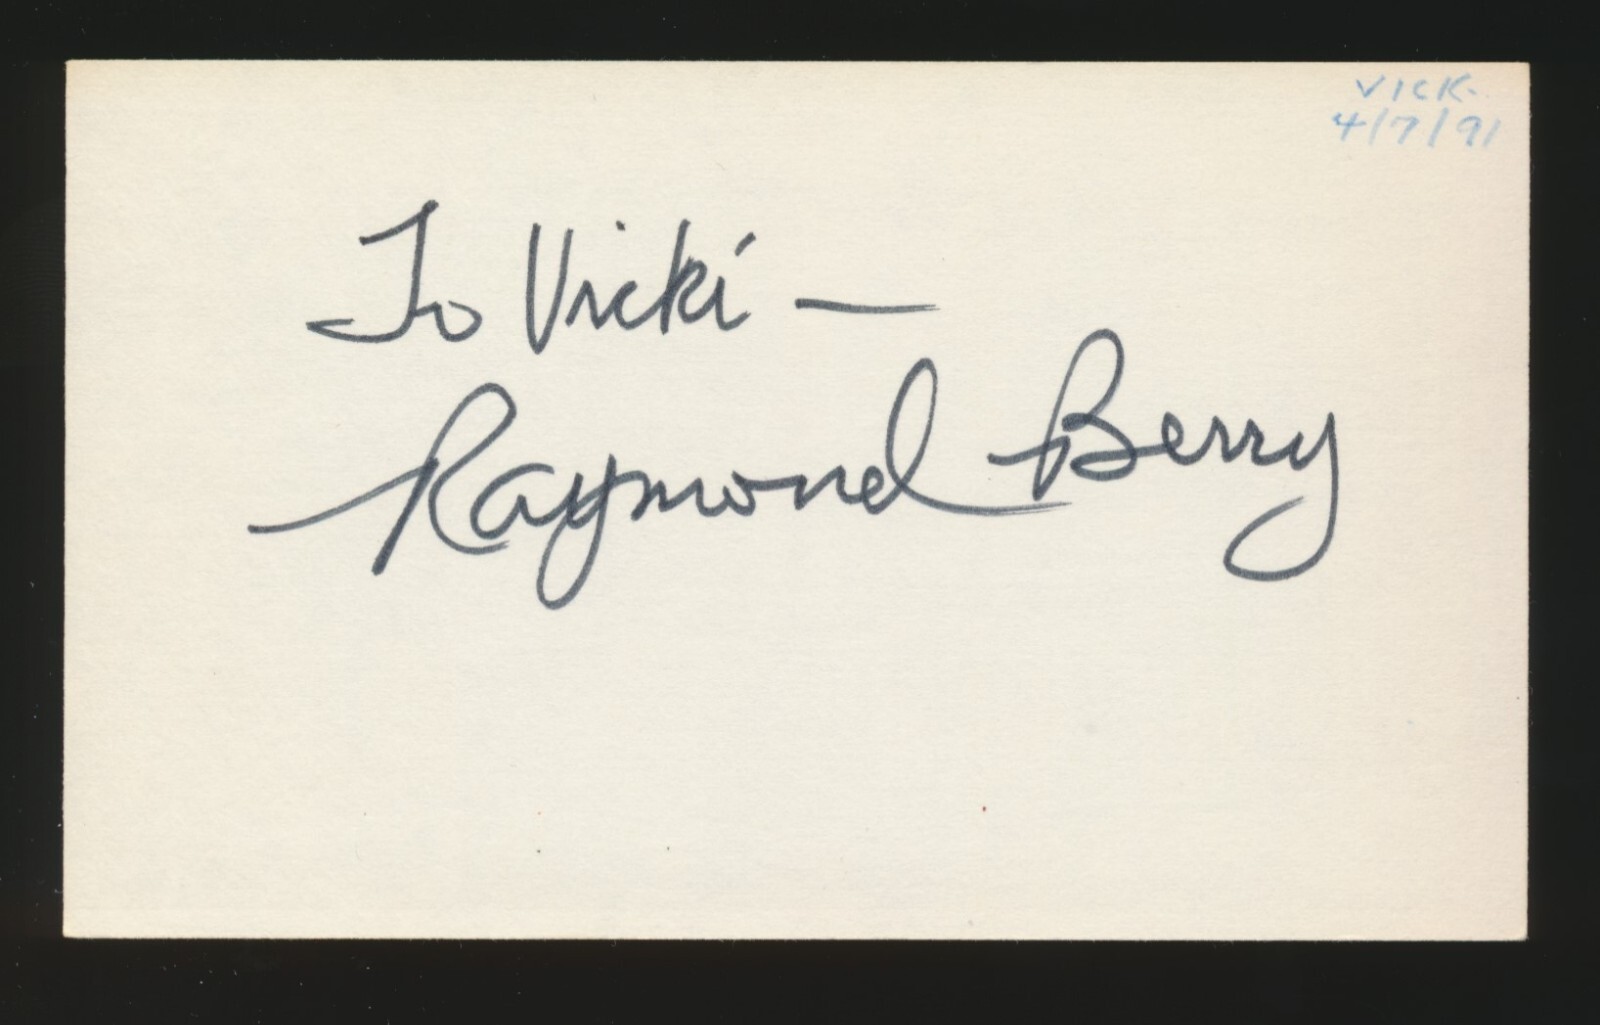 VICK.
4/7/91
To Vicki —
Raymond Berry